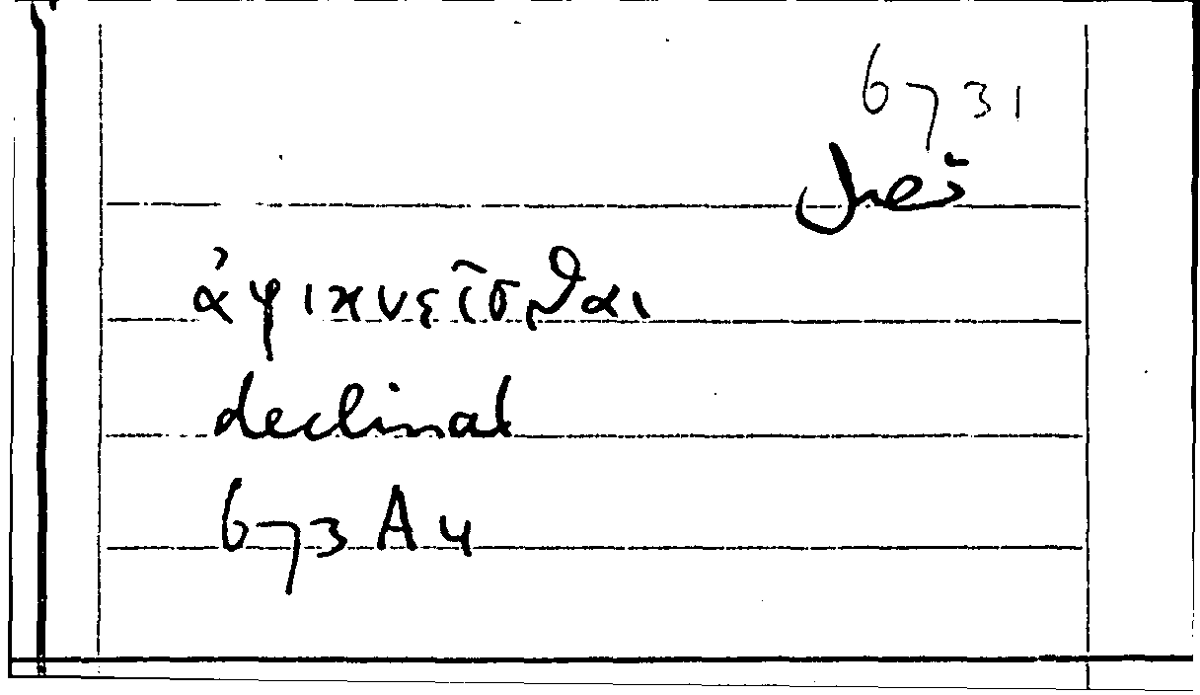 6731
ἀφικνεῖσθαι
declinat
673 A 4